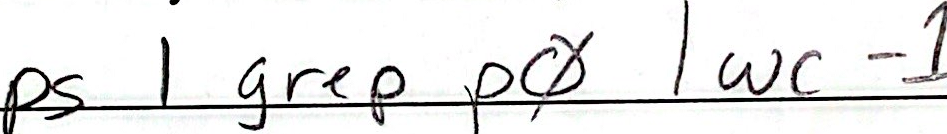 ps | grep p0 | wc -1